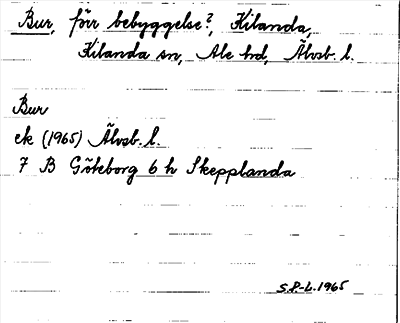 Bur, förr bebyggelse?, Kilanda,
Kilanda sn, Ale hd, Älvsb. l.
Bur
ek (1965) Älvsb. l.
7 B Göteborg 6 h Skepplanda
S.P.-L. 1965